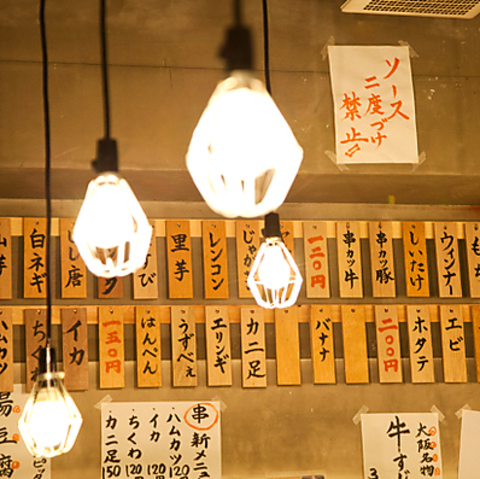 ソース
二度づけ
禁止
もち
ウィンナー
しいたけ
串カツ豚
串カツ牛
一二〇円
じゃが
レンコン
里芋
しし唐
白ネギ
山芋
エビ
ホタテ
二〇〇円
バナナ
カニ足
エリンギ
うずべぇ
はんぺん
一五〇円
イカ
ちくわ
ハムカツ
大阪名物
牛すじ
串 新メニュ
ハムカツ120
イカ 120
ちくわ 120
カニ足 150
湯豆腐